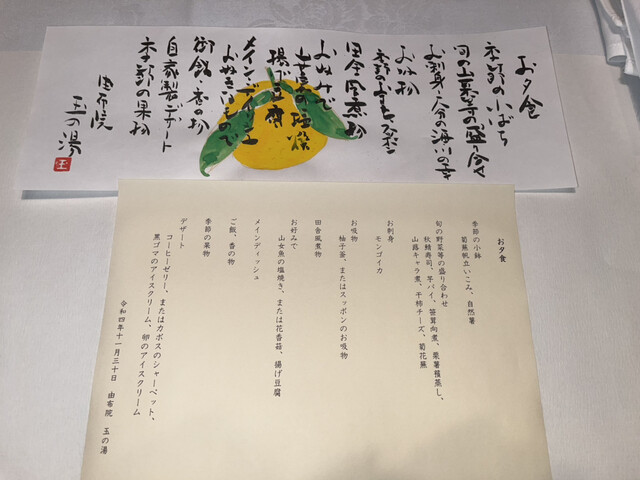 お夕食
季節の小ばち
旬の山菜等の盛合せ
お刺身・大分の海川の幸
お吸物
季節の
田舎風煮物
お好みで
山女魚の塩焼
揚げ豆腐
メインディッシュ
おぬきいもので
御飯・香の物
自家製デザート
季節の果物
由布院
玉の湯
お夕食
季節の小鉢
菊蕪帆立いこみ、自然薯
旬の野菜等の盛り合わせ
秋鯖寿司、芋パイ、笹茸向煮、栗薯蕷蒸し、
山蕗キャラ煮、干柿チーズ、菊花蕪
お刺身
モンゴイカ
お吸物
柚子釜、またはスッポンのお吸物
田舎風煮物
お好みで
山女魚の塩焼き、または花香菇、揚げ豆腐
メインディッシュ
ご飯、香の物
季節の果物
デザート
コーヒーゼリー、またはカボスのシャーベット、
黒ゴマのアイスクリーム、卵のアイスクリーム
令和四年十一月三十日　由布院　玉の湯